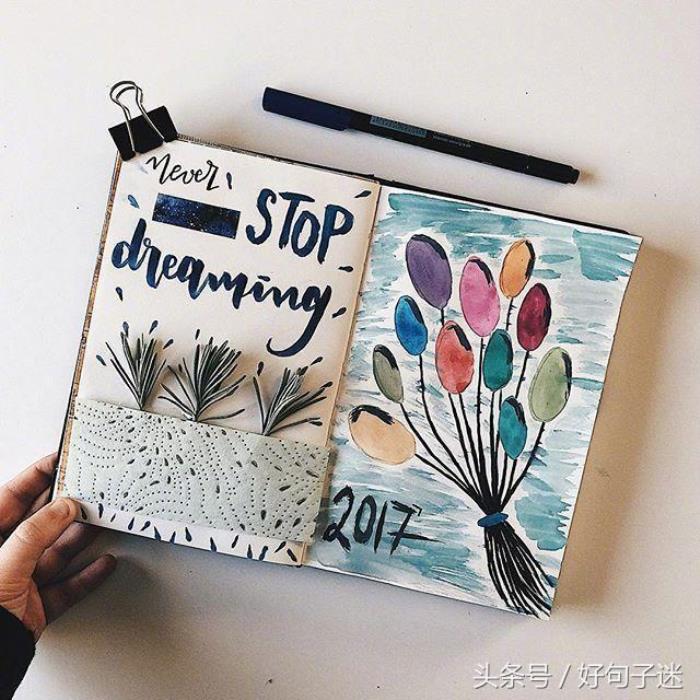 Never
STOP
dreaming
2017
头条号 / 好句子迷